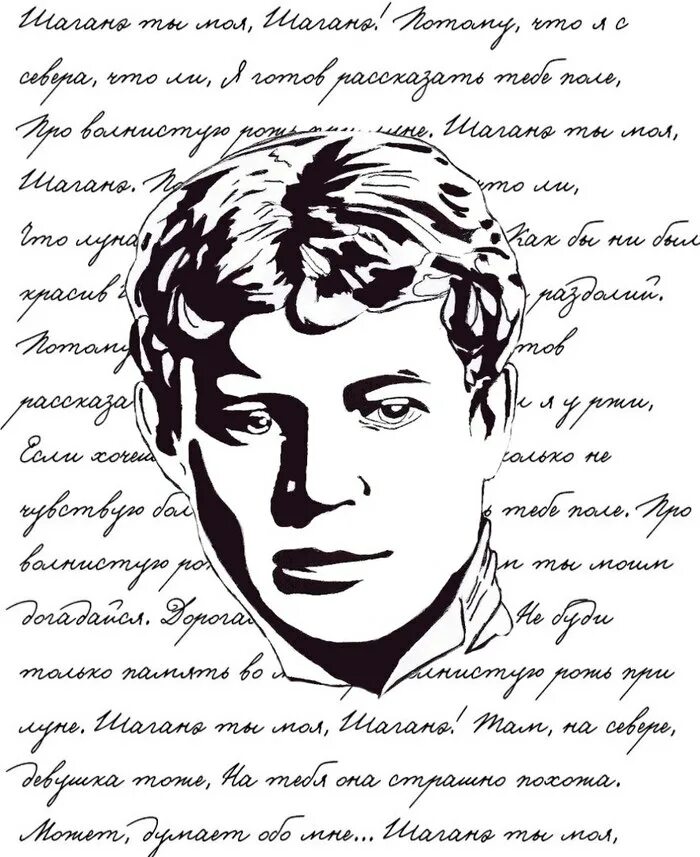 Шаганэ ты моя, Шаганэ! Потому, что я с
севера, что ли, Я готов рассказать тебе поле,
Про волнистую рожь при луне. Шаганэ ты моя,
Шаганэ. По что ли,
Что луна Как бы ни был
красив раздолий.
Потому тов
рассказа и я у ржи,
Если хочеш олько не
чувствую бол тебе поле. Про
волнистую ро м ты моим
догадайся. Дорога Не буди
только память во м лнистую рожь при
луне. Шаганэ ты моя, Шаганэ! Там, на севере,
девушка тоже, На тебя она страшно похожа.
Может, думает обо мне... Шаганэ ты моя,